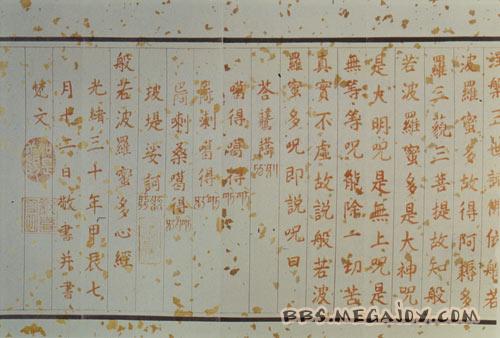 諸佛依般若
波羅蜜多故得阿耨多
羅三藐三菩提故知般
若波羅蜜多是大神咒
是大明咒是無上咒是
無等等咒能除一切苦
真實不虛故說般若波
羅蜜多咒即說咒曰
噶得噶得
喇噶得
喇桑噶得
堤娑訶
般若波羅蜜多心經
光緒三十年甲辰七
月十六日敬書并書
梵文
BBS.MEGAJOY.COM